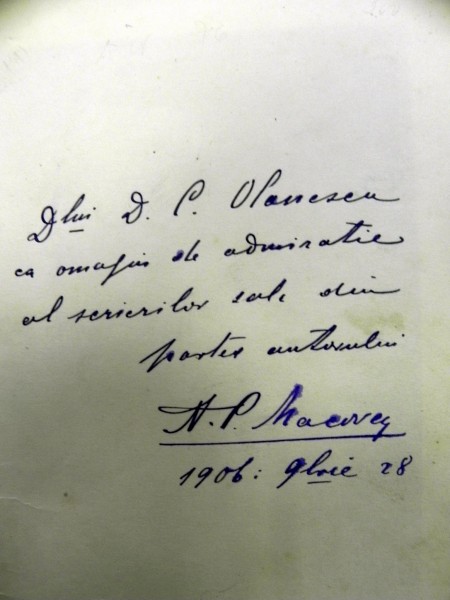 Dlui D. C. Olanescu
ca omagiu de admiratie
al scrierilor sale din
partea autorului
A. P. Macovey
1906: 9brie 28